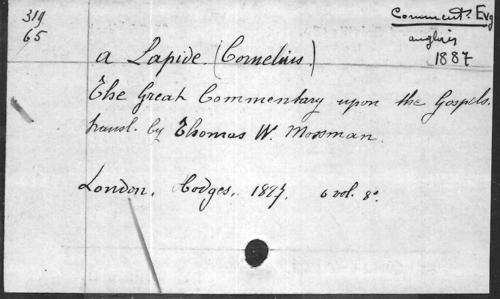 319
65
Comment. Evg
anglais
1887
a Lapide. (Cornelius.)
The Great Commentary upon the Gospels.
transl. by Thomas W. Mossman.
London, Hodges, 1887. 6 vol. 8º.